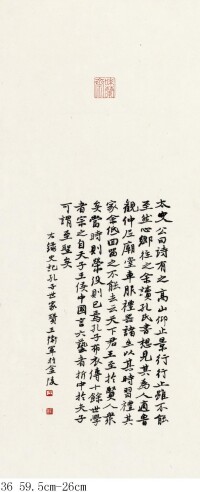 太史公曰詩有之高山仰止景行行止雖不能
至然心鄉往之余讀孔氏書想見其為人適魯
觀仲尼廟堂車服禮器諸生以其時習禮其
家余低回留之不能去云天下君王至於賢人眾
矣當時則榮沒則已焉孔子布衣傳十餘世學
者宗之自天子王侯中國言六藝者折中於夫子
可謂至聖矣
右錄史記孔子世家贊王衛軍於金陵
36 59.5cm-26cm